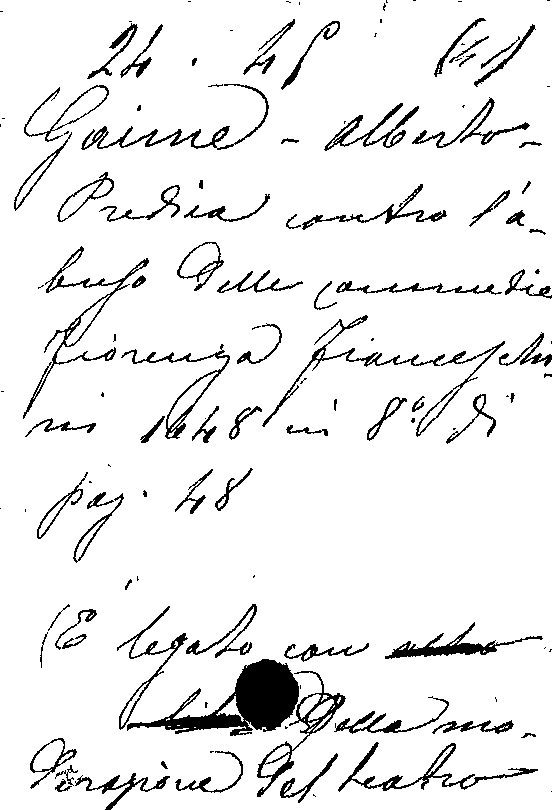 24. 45 (41)
Gaime - Alberto -
Predica contro l'a-
buso delle commedie
Fiorenza Franceschi-
ni 1648 in 8.° di
pag. 48
(È legato con altro
libro Della mo-
derazione del teatro